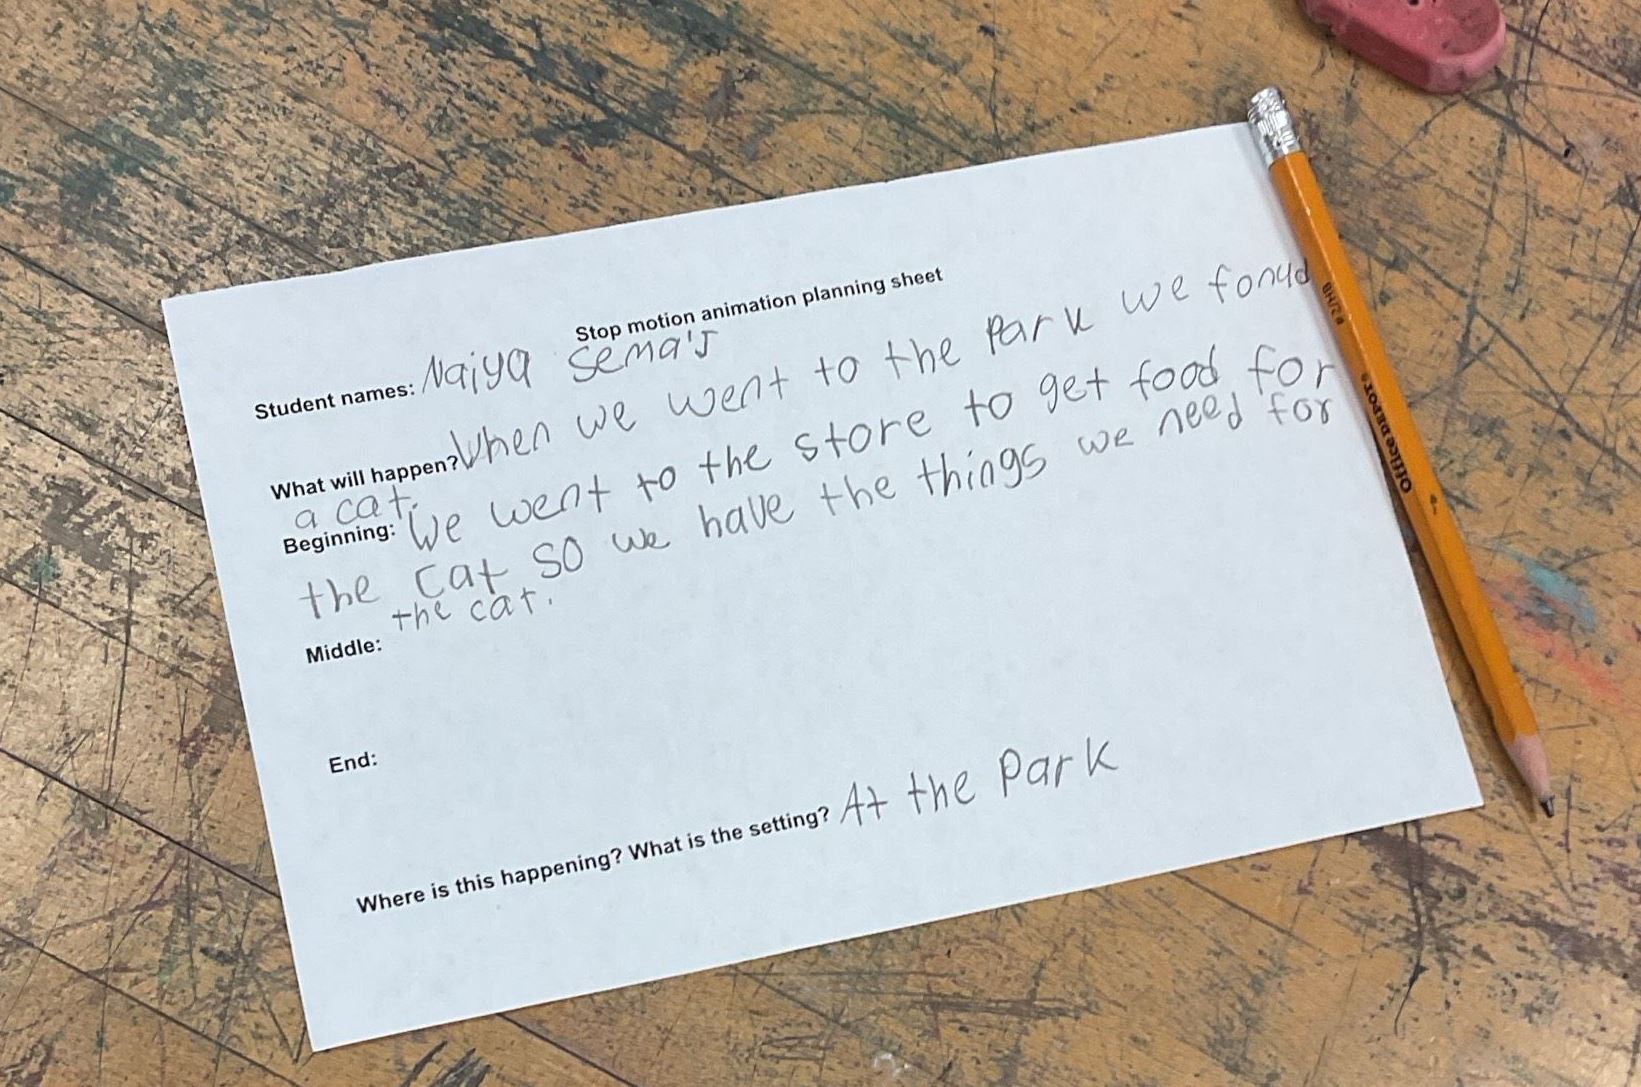 Stop motion animation planning sheet
Student names: Naiya Sema's
What will happen? When we went to the Park we fonud
a cat.
Beginning: We went to the store to get food for
the cat so we have the things we need for
the cat.
Middle:
End:
Where is this happening? What is the setting? At the Park
OFFICE DEPOT®
#2/HB